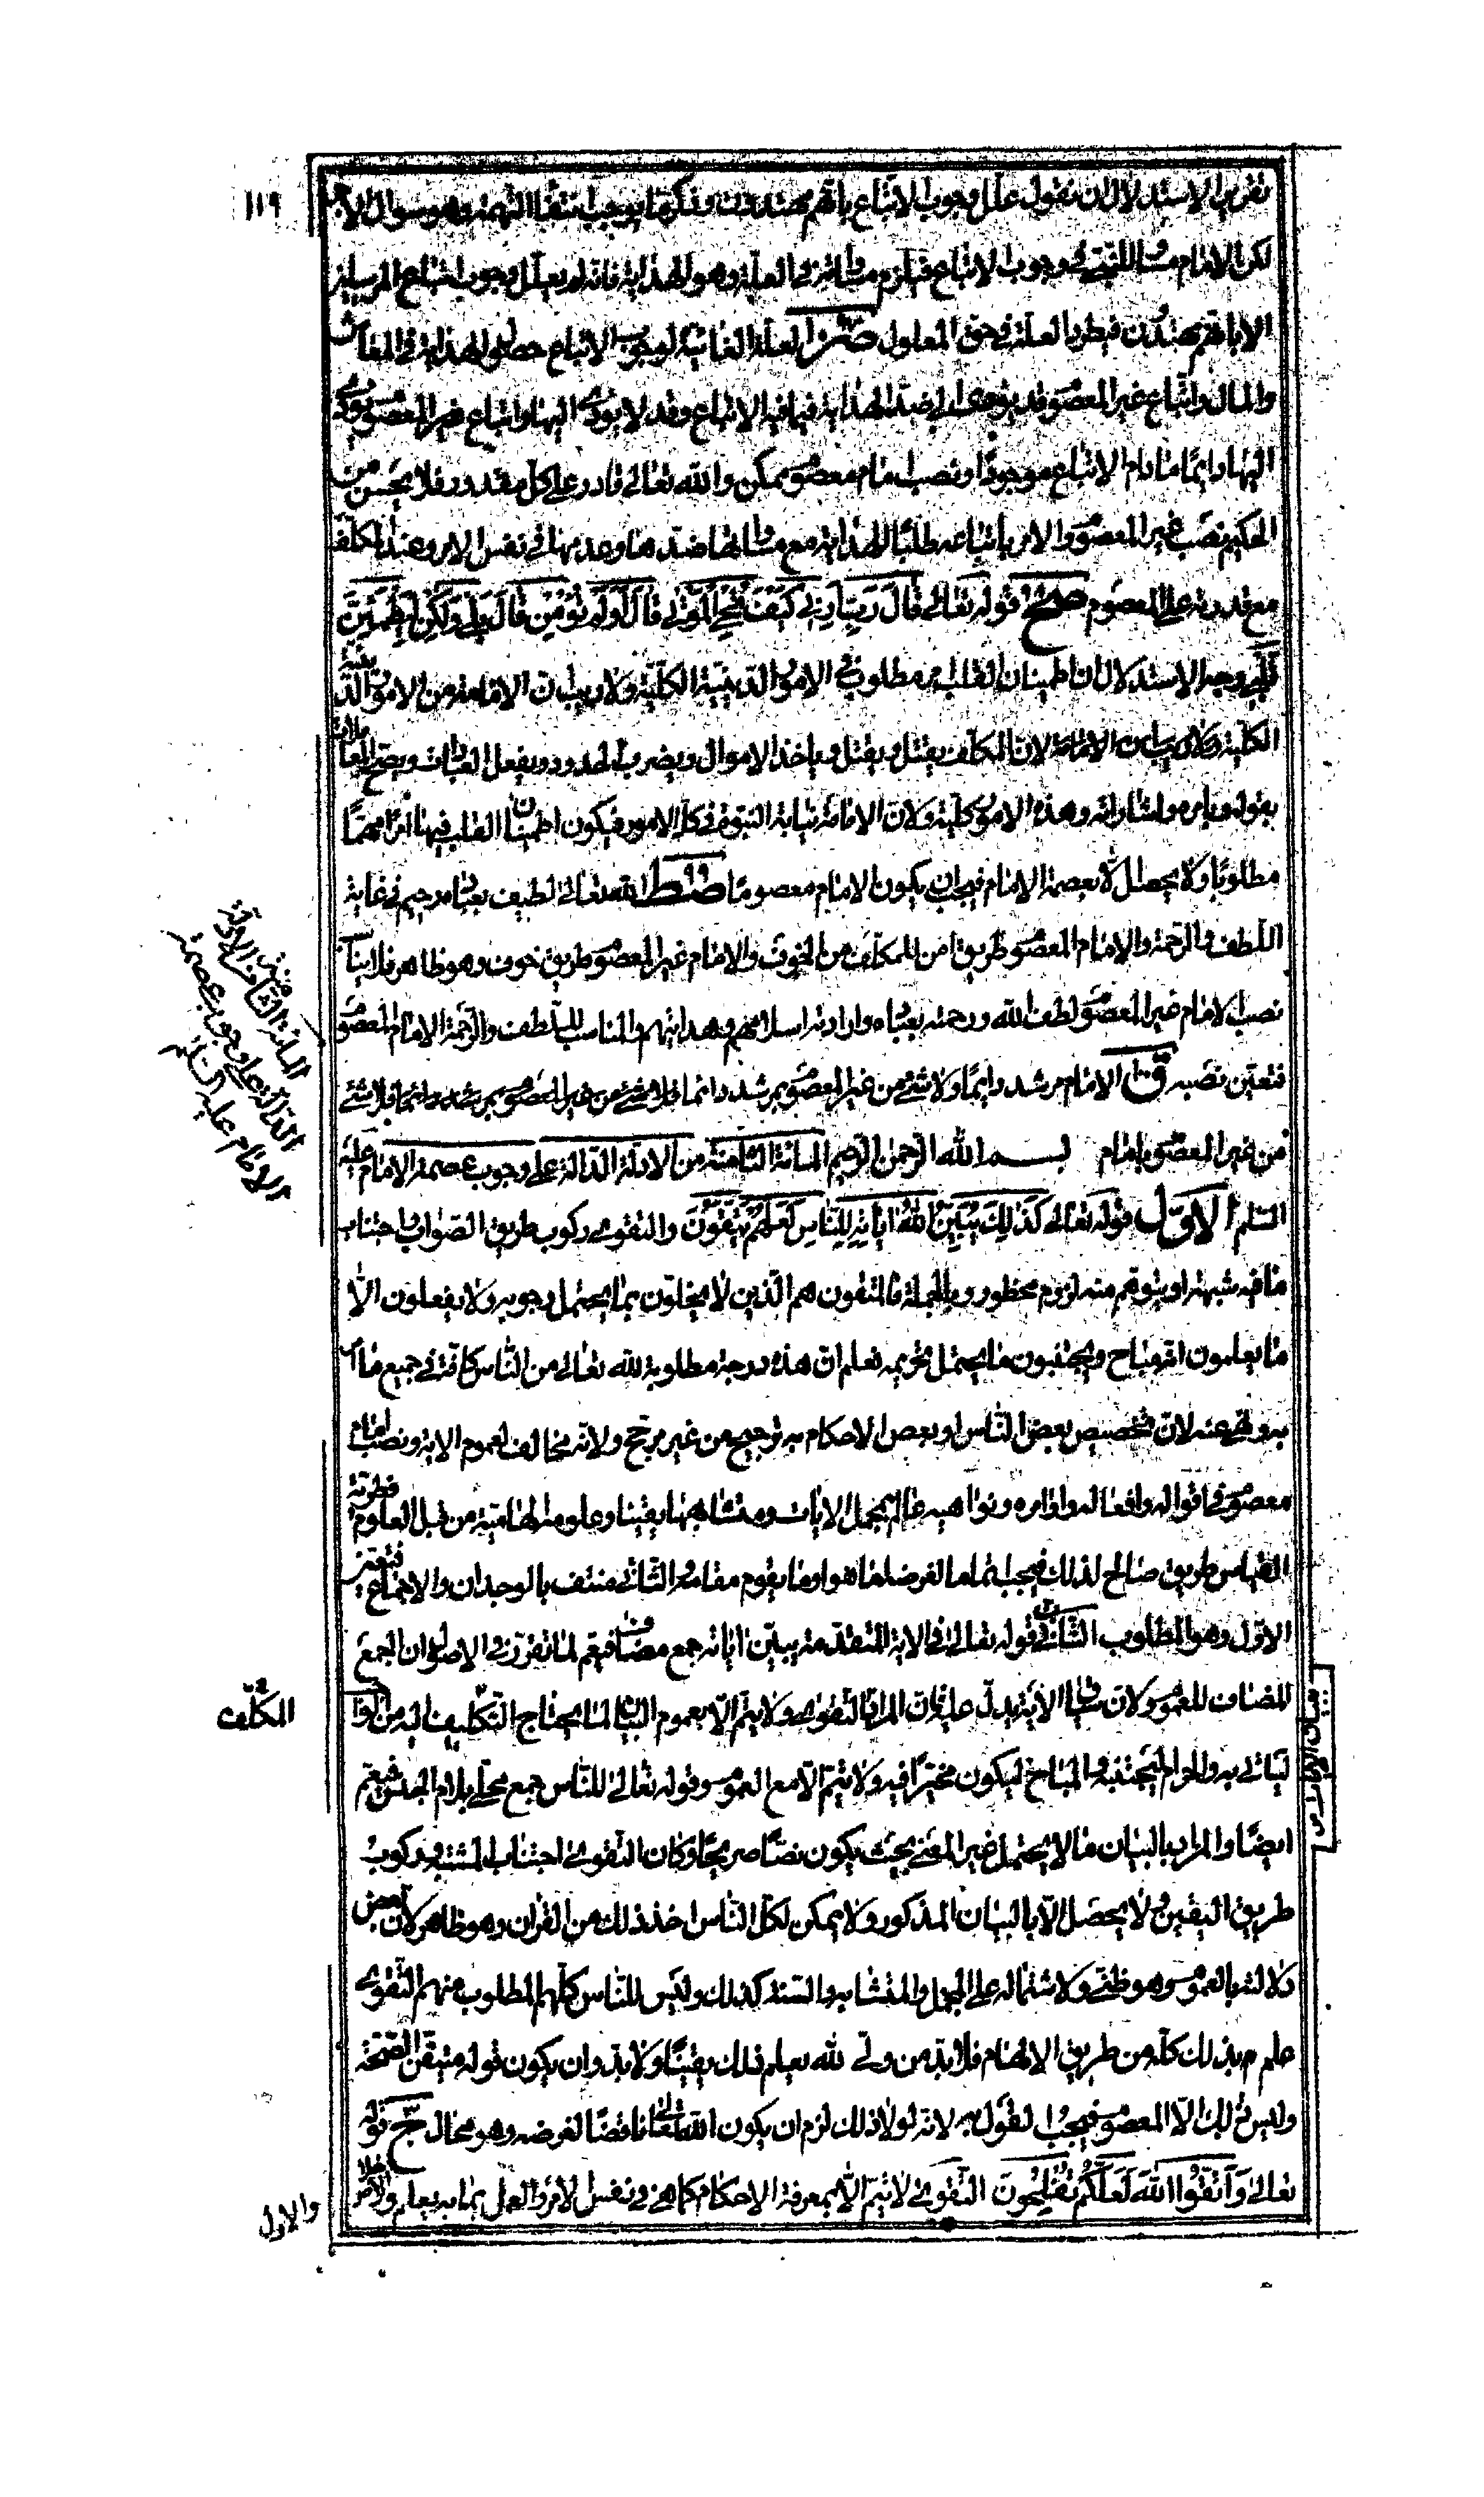 ١١٩
تقرير الاستدلال ان نقول علل وجوب الاتباع بانهم مهتدون
لكن الامام مساو للنبي في وجوب الاتباع فيلزم مساواته في العلة وهو الهداية فانه لم يعلل وجوب اتباع المرسلين
الا بانهم مهتدون فيطرد العلة في حق المعلول صز العلة الغائية لوجوب الاتباع حصول الهداية في المعاش
والمال واتباع غير المعصوم قد يؤدى الى ضد الهداية فينافيه الاتباع وقد لا يؤدى اليها واتباع غير المعصوم يؤدى
اليها دايمًا ما دام الاتباع موجودًا ونصب امام معصوم ممكن والله تعالى قادر على كل مقدور فلا يحسن من
الحكيم نصب غير المعصوم والامر باتباعه طلبًا للهداية مع مساواتها ضدها وعدمها في نفس الامر وعند المكلف
مع قدرته على المعصوم صح قوله تعالى قَالَ رَبِّ اَرِنِي كَيْفَ تُحْيِ الْمَوْتى قَالَ اَوَلَمْ تُؤْمِنْ قَالَ بَلى وَلَكِنْ لِيَطْمَئِنَّ
قَلْبِي وجه الاستدلال ان اطمينان القلب مطلوب في الامور الدينية الكلية ولا ريب ان الامامة من الامور الدينية
الكلية ولا ريب ان الامامة لان المكلف يقتل ويقتل وياخذ الاموال ويضرب الحدود ويفعل العبادات ويصح المعاملات
بقوله وبامره واشارته وهذه الامور كلية ولان الامامة نيابة النبوة في كل الامور فيكون اطمينان القلب فيها امرًا مهمًا
مطلوبًا ولا يحصل الا بعصمة الامام فيجب ان يكون الامام معصومًا صط الله تعالى لطيف بعباده رحيم في غاية
اللطف والرحمة والامام المعصوم طريق امن للمكلف من الخوف والامام غير المعصوم طريق خوف وهو ظاهر فلا يناسب
نصب الامام غير المعصوم لطف الله ورحمته بعباده وارادته اسلامهم وهدايتهم والمناسب للطف والرحمة الامام المعصوم
فتعين نصبه ق الامام مرشد دايمًا ولا شئ من غير المعصوم بمرشد دائما فلا شئ
من غير المعصوم بامام بسم الله الرحمن الرحيم المائة الثامنة من الادلة الدالة على وجوب عصمة الامام عليه
السلم الاول قوله تعالى كَذلِكَ يُبَيِّنُ اللهُ اياتِهِ لِلنَّاسِ لَعَلَّهُمْ يَتَّقُونَ والتقوى ركوب طريق الصواب واجتناب
ما فيه شبهة او يتوهم منه لزوم محظور وبالجملة فالمتقون هم الذين لا يخلون بما يحتمل وجوبه ولا يفعلون الا
ما يعلمون انه مباح ويجتنبون ما يحتمل تحريمه نعلم ان هذه درجة مطلوبة لله تعالى من الناس كافة في جميع ما امر
به ونهى عنه لان تخصيص بعض الناس او بعض الاحكام به ترجيح من غير مرجح ولانه مخالف لعموم الاية ونصب امام
معصوم في اقواله وافعاله واوامره ونواهيه عالم بمجمل الايات ومتشابهها يقينا وعلومه الهامية من قبل العلوم فطرية
القياس طريق صالح لذلك فيجب اما هو او ما يقوم مقامه والثاني منتف بالوجدان والاجماع فتعين
الاول وهو المطلوب الثاني قوله تعالى في الاية المتقدمة يبين اياته جمع مضاف فيعم لما تقرر في الاصول ان الجمع
المضاف للعموم ولان سياق الاية يدل على ان المراد التقوى ولا يتم الا بعموم البيان لما يحتاج التكليف اليه من الواجب
لياتي به والحرام ليجتنبه والمباح ليكون مخيرًا فيه ولا يتم الا مع العموم وقوله تعالى للناس جمع محلى بلام الجنس فيعم
ايضًا والمراد بالبيان ما لا يحتمل غير المعنى بحيث يكون نصًا صريحًا وكان التقوى اجتناب المشتبه وركوب
طريق اليقين ولا يحصل الا بالبيان المذكور ولا يمكن لكل الناس اخذ ذلك من القران وهو ظاهر لان بعض
دلالته بالعموم وهو ظني ولاشتماله على المجمل والمتشابه والسنة كذلك وليس للناس كلهم المطلوب منهم التقوى
علم بذلك كله من طريق الالهام فلا بد من ولي لله يعلم ذلك يقينًا ولا بد وان يكون قوله متيقن الصحة
وليس ذلك الا المعصوم فيجب القول به لانه لولا ذلك لزم ان يكون الله تعالى ناقضًا لغرضه وهو محال ج قوله
تعالى وَاتَّقُوا اللهَ لَعَلَّكُمْ تُفْلِحُونَ التقوى لا يتم الا بمعرفة الاحكام كما هي في نفس الامر والعمل بما به يعلم
المائة الثامنة من الادلة
الدالة على وجوب عصمة
الامام عليه السلم
المكلف
والاول